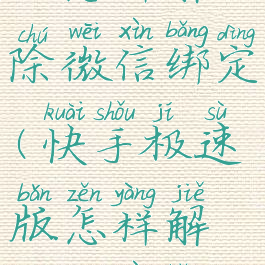 chú wēi xìn bǎng dìng
除微信绑定
kuài shǒu jí sù
(快手极速
bǎn zěn yàng jiě
版怎样解